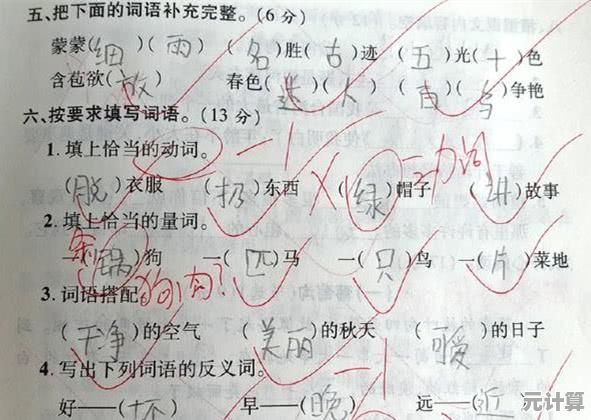 五、把下面的词语补充完整。(6分)
蒙蒙(细)(雨) (名)胜(古)迹 (五)光(十)色
含苞欲(放) 春色(迷)(人) (百)(鸟)争艳
六、按要求填写词语。(13分)
1.填上恰当的动词。 -1 动词
(脱)衣服 (扔)东西 (绿)帽子 (讲)故事
2.填上恰当的量词。
(锅)狗 一(匹)马 一(只)鸟 一(片)菜地
3.词语搭配 狗肉?
(干净)的空气 (美丽)的秋天 (暖)的日子
4.写出下列词语的反义词。
好——(坏) 早——(晚) 远——(近
元计算